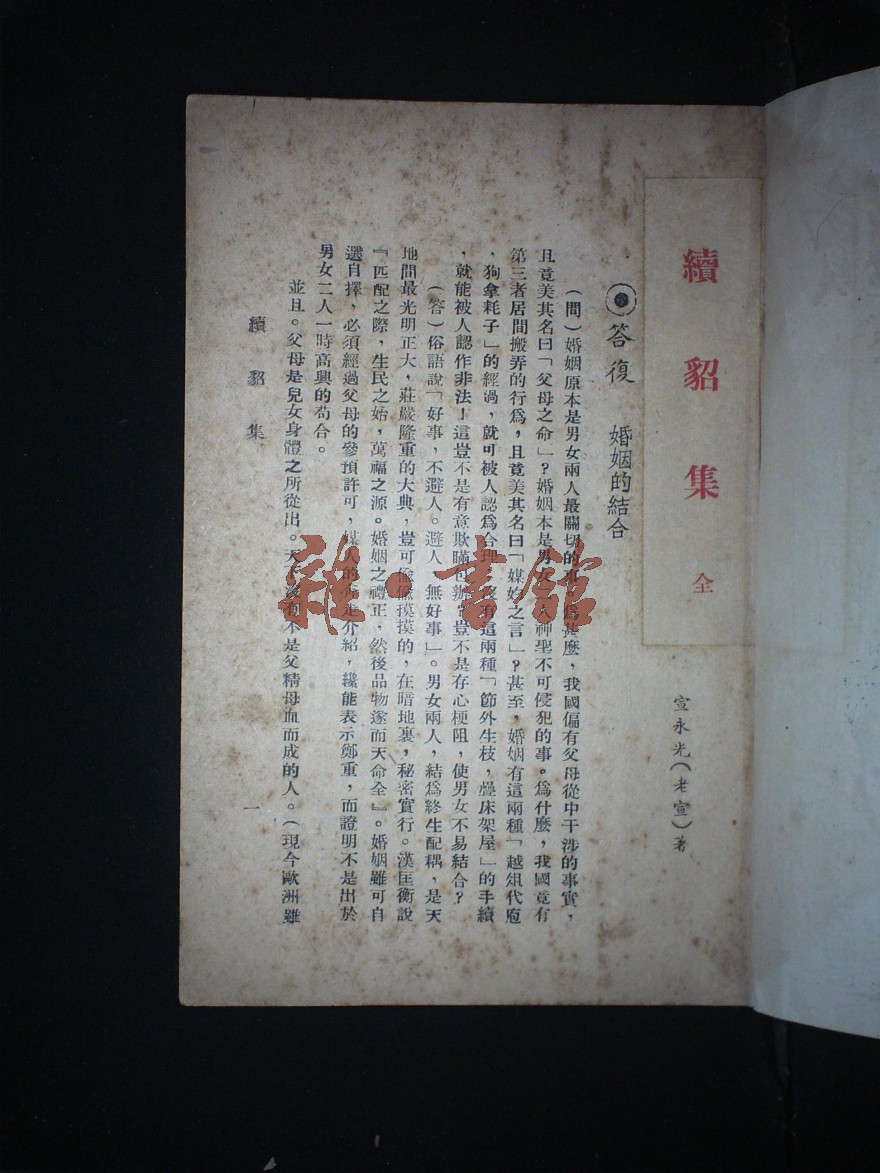 續貂集 全
宣永光（老宣）著
答復 婚姻的結合
（問）婚姻原本是男女兩人最關切的 爲甚麼，我國偏有父母從中干涉的事實，
且竟美其名曰「父母之命」？婚姻本是男女 神聖不可侵犯的事。爲什麼，我國竟有
第三者居間搬弄的行爲，且竟美其名曰「媒妁之言」？甚至，婚姻有這兩種「越俎代庖
，狗拿耗子」的經過，就可被人認爲合理 有這兩種「節外生枝，疊床架屋」的手續
，就能被人認作非法！這豈不是有意欺瞞包辦，豈不是存心梗阻，使男女不易結合？
（答）俗語說「好事，不避人。避人，無好事」。男女兩人，結爲終生配耦，是天
地間最光明正大，莊嚴隆重的大典，豈可偷偷摸摸的，在暗地裏，秘密實行。漢匡衡說
『匹配之際，生民之始，萬福之源。婚姻之禮正，然後品物遂而天命全』。婚姻雖可自
選自擇，必須經過父母的參預許可，媒人的 介紹，纔能表示鄭重，而證明不是出於
男女二人一時高興的苟合。
並且。父母是兒女身體之所從出。天 沒有不是父精母血而成的人。（現今歐洲雖
續貂集
一
雜·書館